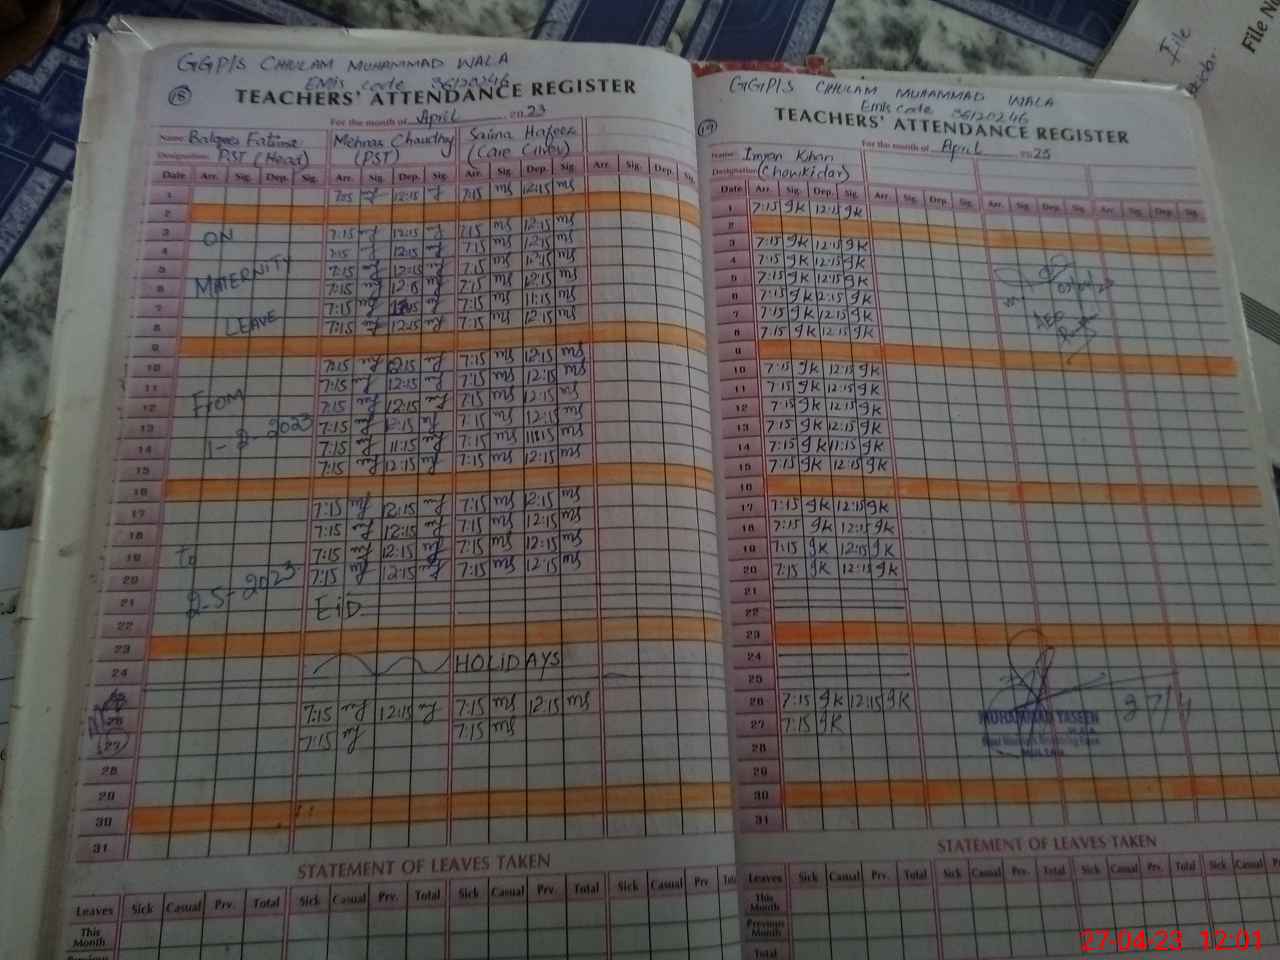 GGP/S GHULAM MUHAMMAD WALA
EMIS code 36120246
18
TEACHERS' ATTENDANCE REGISTER
For the month of April 2023
Name Balqees Fatima Mehnaz Chaudhry Saima Hafeez
Designation PST (Head) (PST) (Care Giver)
Date Arr. Sig. Dep. Sig. Arr. Sig. Dep. Sig. Arr. Sig. Dep. Sig. Arr. Sig. Dep. Sig.
1 7:05 mf 12:15 mf 7:15 ms 12:15 ms
2
3 ON 7:15 mf 12:15 mf 7:15 ms 12:15 ms
4 7:15 mf 12:15 mf 7:15 ms 12:15 ms
5 MATERNITY 7:15 mf 12:15 mf 7:15 ms 12:15 ms
6 7:15 mf 12:15 mf 7:15 ms 12:15 ms
7 LEAVE 7:15 mf mf 7:15 ms 11:15 ms
8 7:15 mf 12:15 mf 7:15 ms 12:15 ms
9
10 7:15 mf 12:15 mf 7:15 ms 12:15 ms
11 From 7:15 mf 12:15 mf 7:15 ms 12:15 ms
12 7:15 mf 12:15 mf 7:15 ms 12:15 ms
13 1-2-2023 7:15 mf 12:15 mf 7:15 ms 12:15 ms
14 7:15 mf 11:15 mf 7:15 ms 11:15 ms
15 7:15 mf 12:15 mf 7:15 ms 12:15 ms
16
17 7:15 mf 12:15 mf 7:15 ms 12:15 ms
18 7:15 mf 12:15 mf 7:15 ms 12:15 ms
19 To 7:15 mf 12:15 mf 7:15 ms 12:15 ms
20 2-5-2023 7:15 mf 12:15 mf 7:15 ms 12:15 ms
21 EiD
22
23
24 HOLIDAYS
26 7:15 mf 12:15 mf 7:15 ms 12:15 ms
27 7:15 mf 7:15 ms
28
29
30
31
STATEMENT OF LEAVES TAKEN
Leaves Sick Casual Prv. Total Sick Casual Prv. Total Sick Casual Prv.
This Month
GGP/S GHULAM MUHAMMAD WALA
Emis code 36120246
19
TEACHERS' ATTENDANCE REGISTER
For the month of April 2023
Name Imran Khan
Designation (Chowkidar)
Date Arr. Sig. Dep. Sig. Arr. Sig. Dep. Sig. Arr. Sig. Dep. Sig. Arr. Sig. Dep. Sig.
1 7:15 gk 12:15 gk
2
3 7:15 gk 12:15 gk
4 7:15 gk 12:15 gk
5 7:15 gk 12:15 gk
6 7:15 gk 12:15 gk
7 7:15 gk 12:15 gk
8 7:15 gk 12:15 gk
AEO
9
10 7:15 gk 12:15 gk
11 7:15 gk 12:15 gk
12 7:15 gk 12:15 gk
13 7:15 gk 12:15 gk
14 7:15 gk 11:15 gk
15 7:15 gk 12:15 gk
16
17 7:15 gk 12:15 gk
18 7:15 gk 12:15 gk
19 7:15 gk 12:15 gk
20 7:15 gk 12:15 gk
21
22
23
24
25
26 7:15 gk 12:15 gk
27 7:15 gk
MUHAMMAD YASEEN
27/4
28
29
30
31
STATEMENT OF LEAVES TAKEN
Leaves Sick Casual Prv. Total Sick Casual Prv. Total Sick Casual
This Month
Previous Month
Total
File
File No
27-04-23 12:01